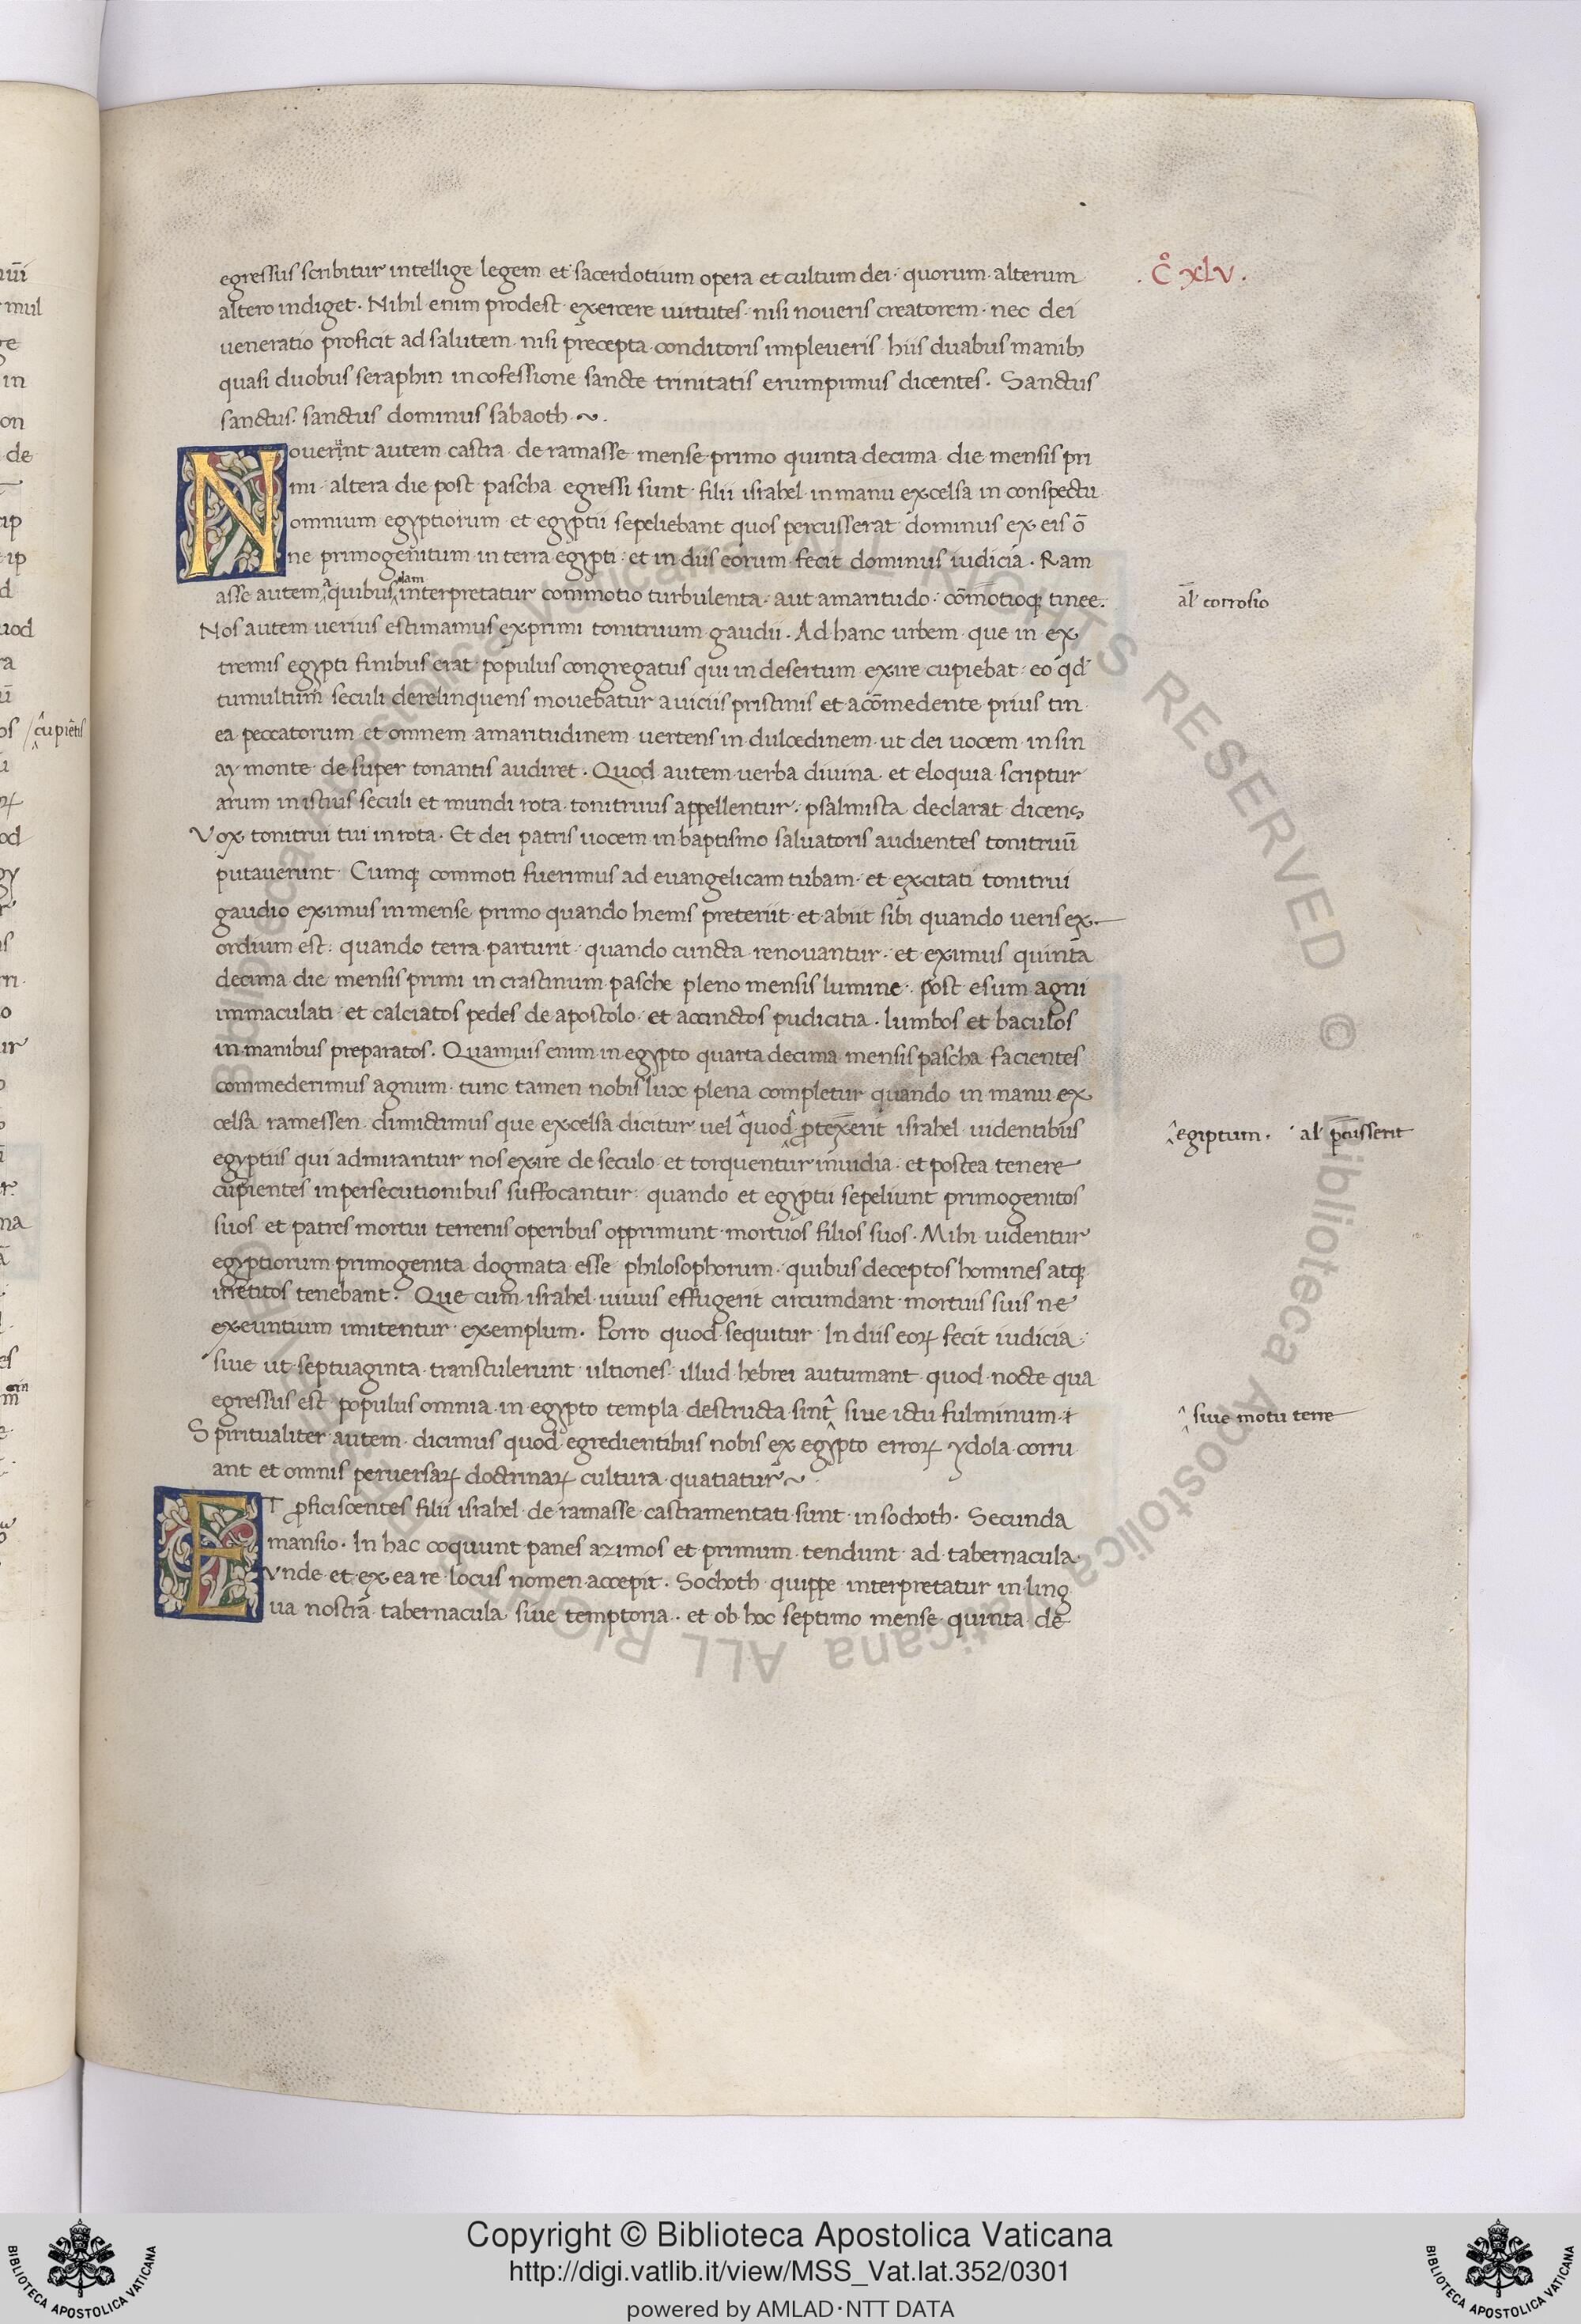 egressus scribitur intellige legem et sacerdotium opera et cultum dei · quorum · alterum
· C° xlv ·
altero indiget · Nihil enim prodest exercere virtutes · nisi noveris creatorem · nec dei
veneratio proficit ad salutem · nisi precepta conditoris impleveris · hiis duabus manibꝫ
quasi duobus seraphin in cofessione sancte trinitatis erumpimus dicentes · Sanctus
sanctus · sanctus dominus sabaoth ~ ·
Noverunt autem castra de ramasse mense primo quinta decima die mensis pri
mi · altera die post pascha egressi sunt filii israhel in manu excelsa in conspectu
omnium egyptiorum et egyptii sepeliebant quos percusserat dominus ex eis ō
ne primogenitum in terra egypti · et in diis eorum fecit dominus iudicia · Ram
asse autem a quibusdam interpretatur commotio turbulenta · aut amaritudo · cōmotioqꝫ tinee ·
al' corrosio
Nos autem verius estimamus exprimi tonitruum gaudii · Ad hanc urbem que in ex
tremis egypti finibus erat populus congregatus qui in desertum exire cupiebat · eo qd'
tumultum seculi derelinquens movebatur a viciis pristinis et a cōmedente prius tin
ea peccatorum et omnem amaritudinem vertens in dulcedinem ut dei vocem in sin
ay monte de super tonantis audiret · Quod autem verba divina et eloquia scriptur
arum in istius seculi et mundi rota tonitruus appellentur · psalmista declarat dicens
Vox tonitrui tui in rota · Et dei patris vocem in baptismo salvatoris audientes tonitruū
putaverunt · Cumqꝫ commoti fuerimus ad evangelicam tubam · et excitati tonitrui
gaudio eximus in mense primo quando hiems preteriit et abiit sibi quando veris ex
ordium est · quando terra parturit · quando cuncta renovantur · et eximus quinta
decima die mensis primi in crastinum pasche pleno mensis lumine · post esum agni
immaculati et calciatos pedes de apostolo · et accinctos pudicitia · lumbos et baculos
in manibus preparatos · Quamvis enim in egypto quarta decima mensis pascha facientes
commederimus agnum · tunc tamen nobis lux plena completur quando in manu ex
celsa ramessen dimictimus que excelsa dicitur vel quod ꝓtexerit israhel videntibus
egiptum · al' ꝑcusserit
egyptiis qui admirantur nos exire de seculo et torquentur invidia · et postea tenere
cupientes in persecutionibus suffocantur · quando et egyptii sepeliunt primogenitos
suos et patres mortui terrenis operibus opprimunt mortuos filios suos · Mihi videntur
egyptiorum primogenita dogmata esse philosophorum · quibus deceptos homines atqꝫ
irretitos tenebant · Que cum israhel vivus effugerit circumdant mortuis suis ne
exeuntium imitentur exemplum · Porro quod sequitur In diis eoꝝ fecit iudicia
sive ut septuaginta transtulerunt ultiones illud hebrei autumant quod nocte qua
egressus est populus omnia in egypto templa destructa sint sive ictu fulminum ·
sive motu terre
Spiritualiter autem dicimus quod egredientibus nobis ex egypto erroꝝ ydola corru
ant et omnis perversaꝝ doctrinaꝝ cultura quatiatur ~
ET ꝓficiscentes filii israhel de ramasse castramentati sunt in sochoth · Secunda
mansio · In hac coquunt panes azimos et primum tendunt ad tabernacula ·
Vnde et ex ea re locus nomen accepit · Sochoth quippe interpretatur in ling
ua nostra tabernacula sive temptoria · et ob hoc septimo mense quinta de
Copyright © Biblioteca Apostolica Vaticana
http://digi.vatlib.it/view/MSS_Vat.lat.352/0301
powered by AMLAD·NTT DATA
BIBLIOTECA APOSTOLICA VATICANA
BIBLIOTECA APOSTOLICA VATICANA